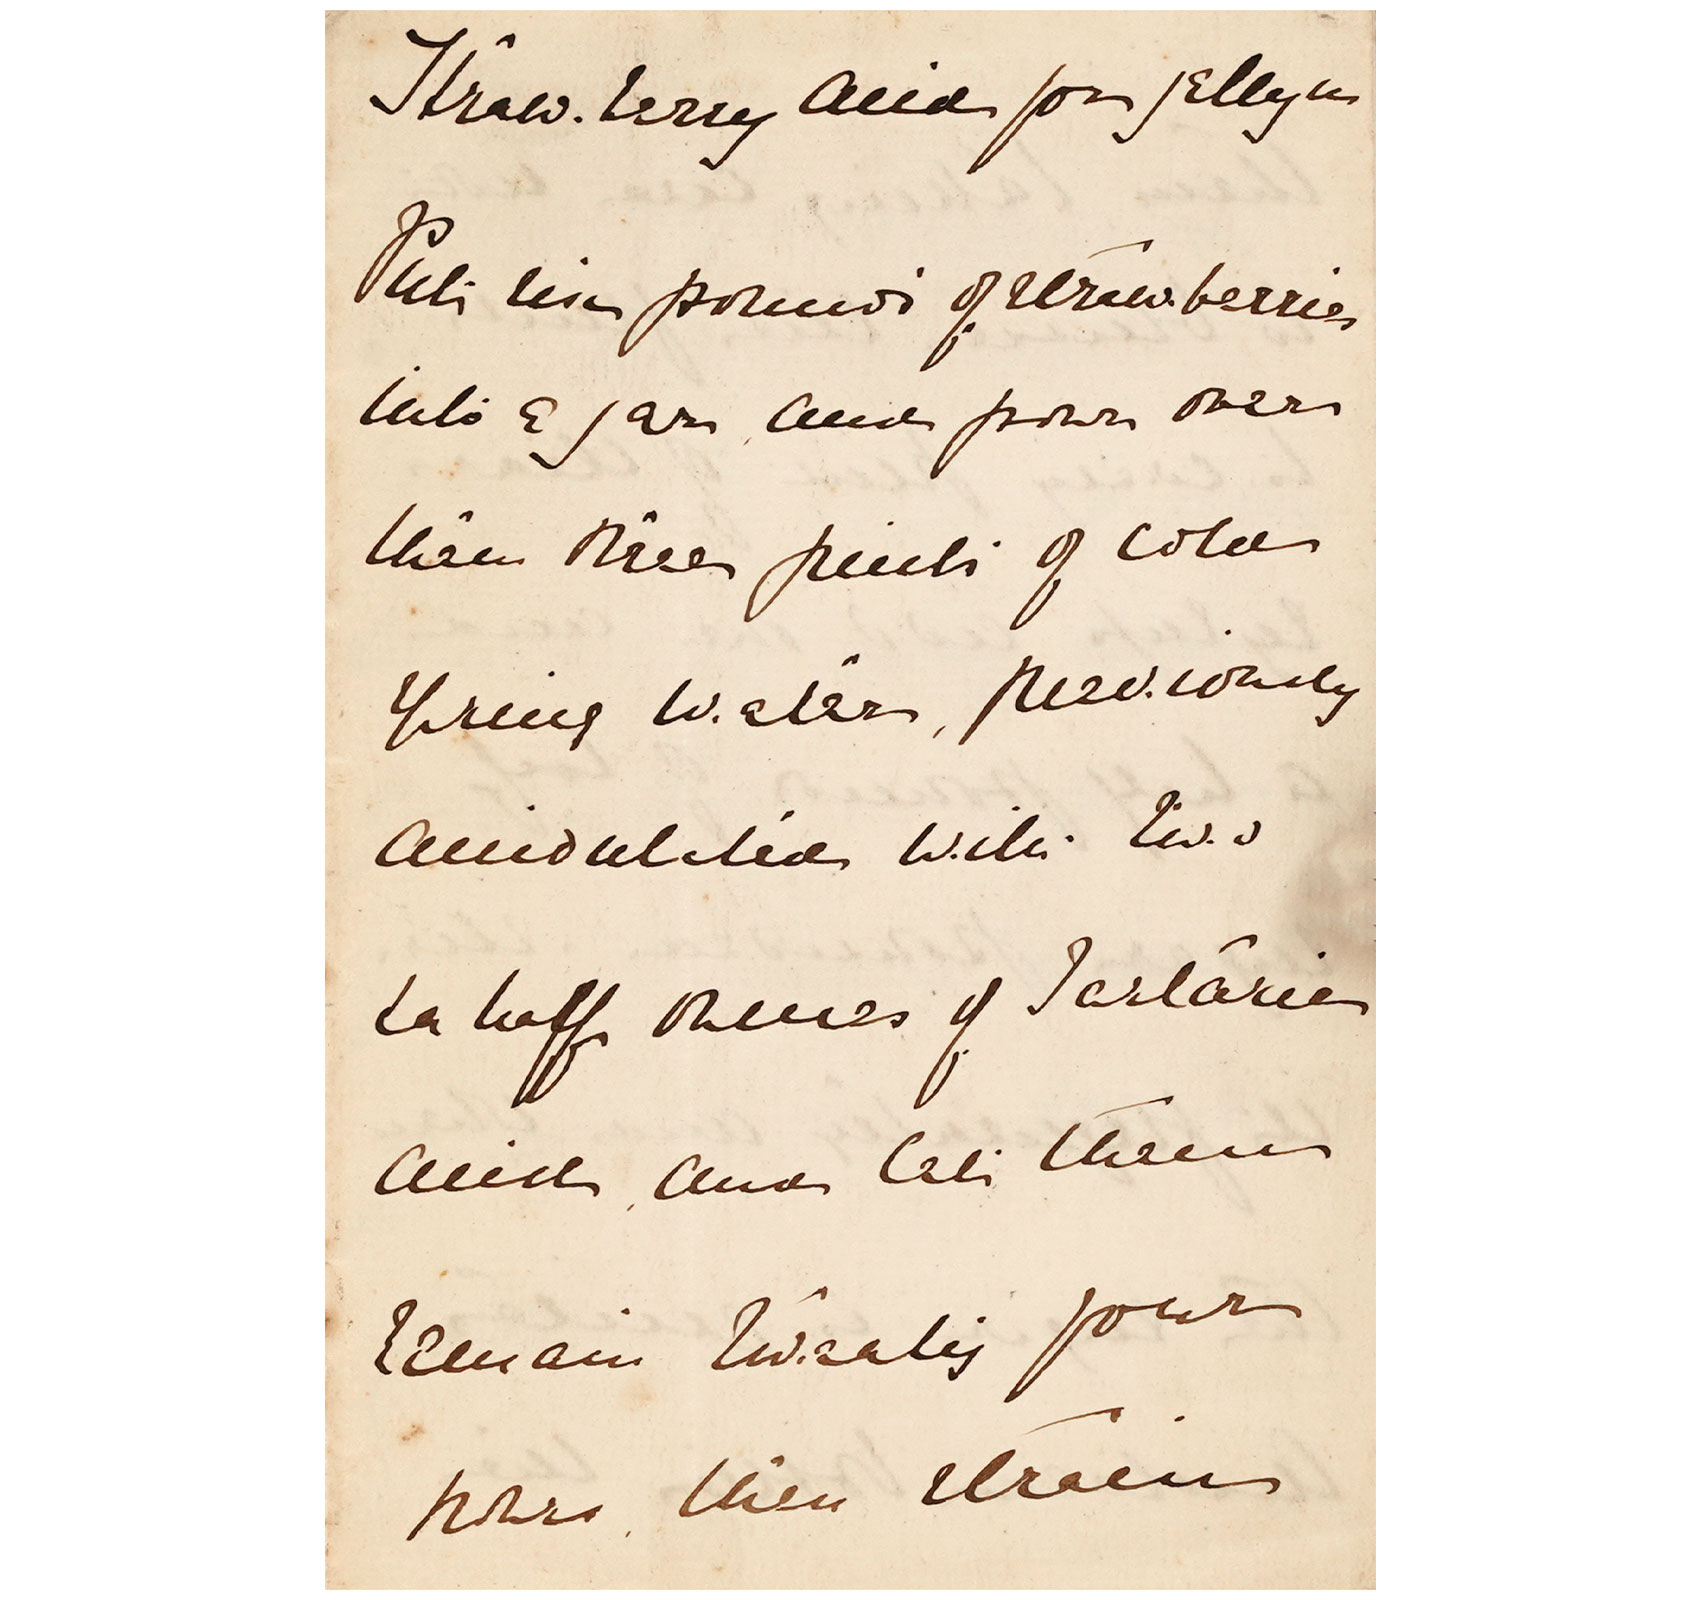 Strawberry Acid for jellyn
Put six pounds of strawberries
into a jar, and pour over
them three pints of cold
Spring water, previously
acidulated with two
&a half ounces of Tartaric
Acid, and let them
remain Twenty four
hours, then strain